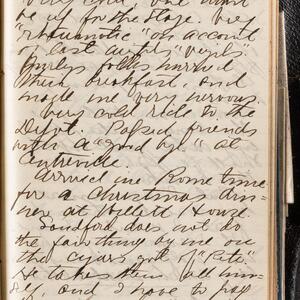 be up for the stage. Very
"rheumatic" on account
of last night's "vigils".
folks hurried
their breakfast, and
made me very nervous.
Very cold ride to the
Depot. Passed friends
with a "good bye" at
Centreville.
Arrived in Rome time
for a Christmas din-
ner at Willett House.
Sandford does not do
the fair thing by me on
the cigars got of "Pete".
He takes them all him-
self, and I have to pay